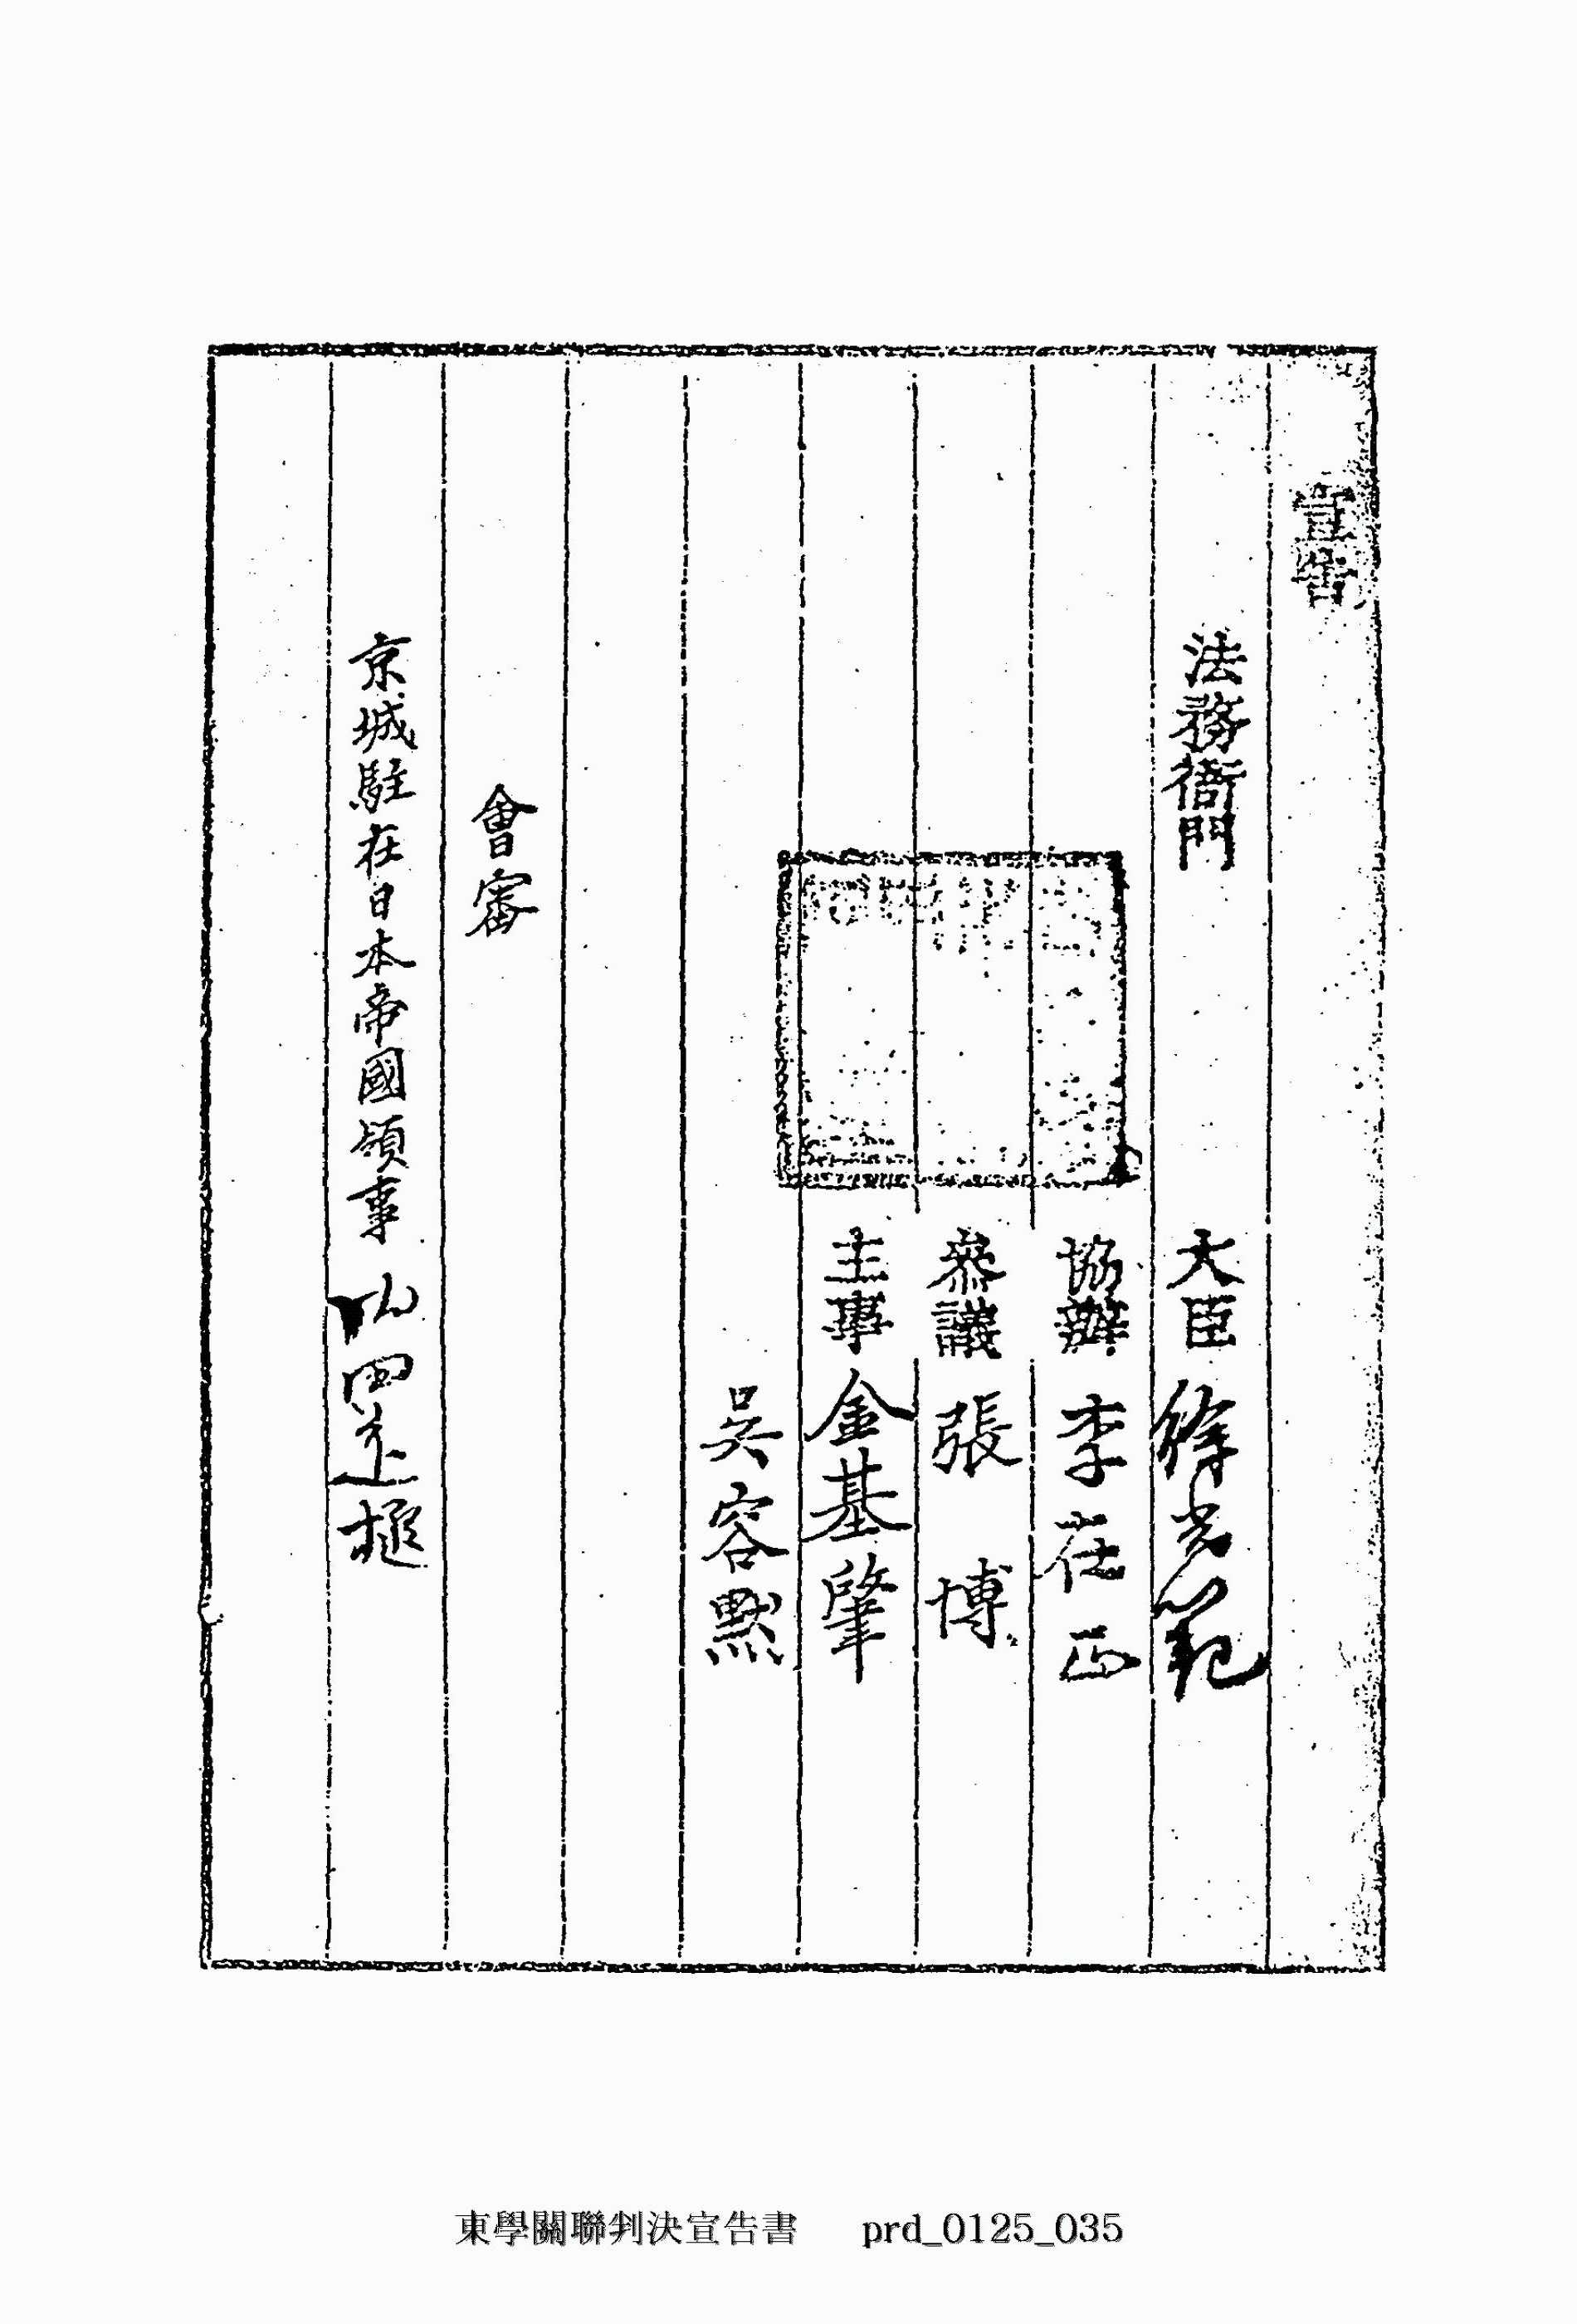 宣告
法務衙門 大臣 徐光範
協辦 李在正
叅議 張博
主事 金基肇
吳容默
會審
京城駐在日本帝國領事 內田定槌
東學關聯判決宣告書 prd_0125_035